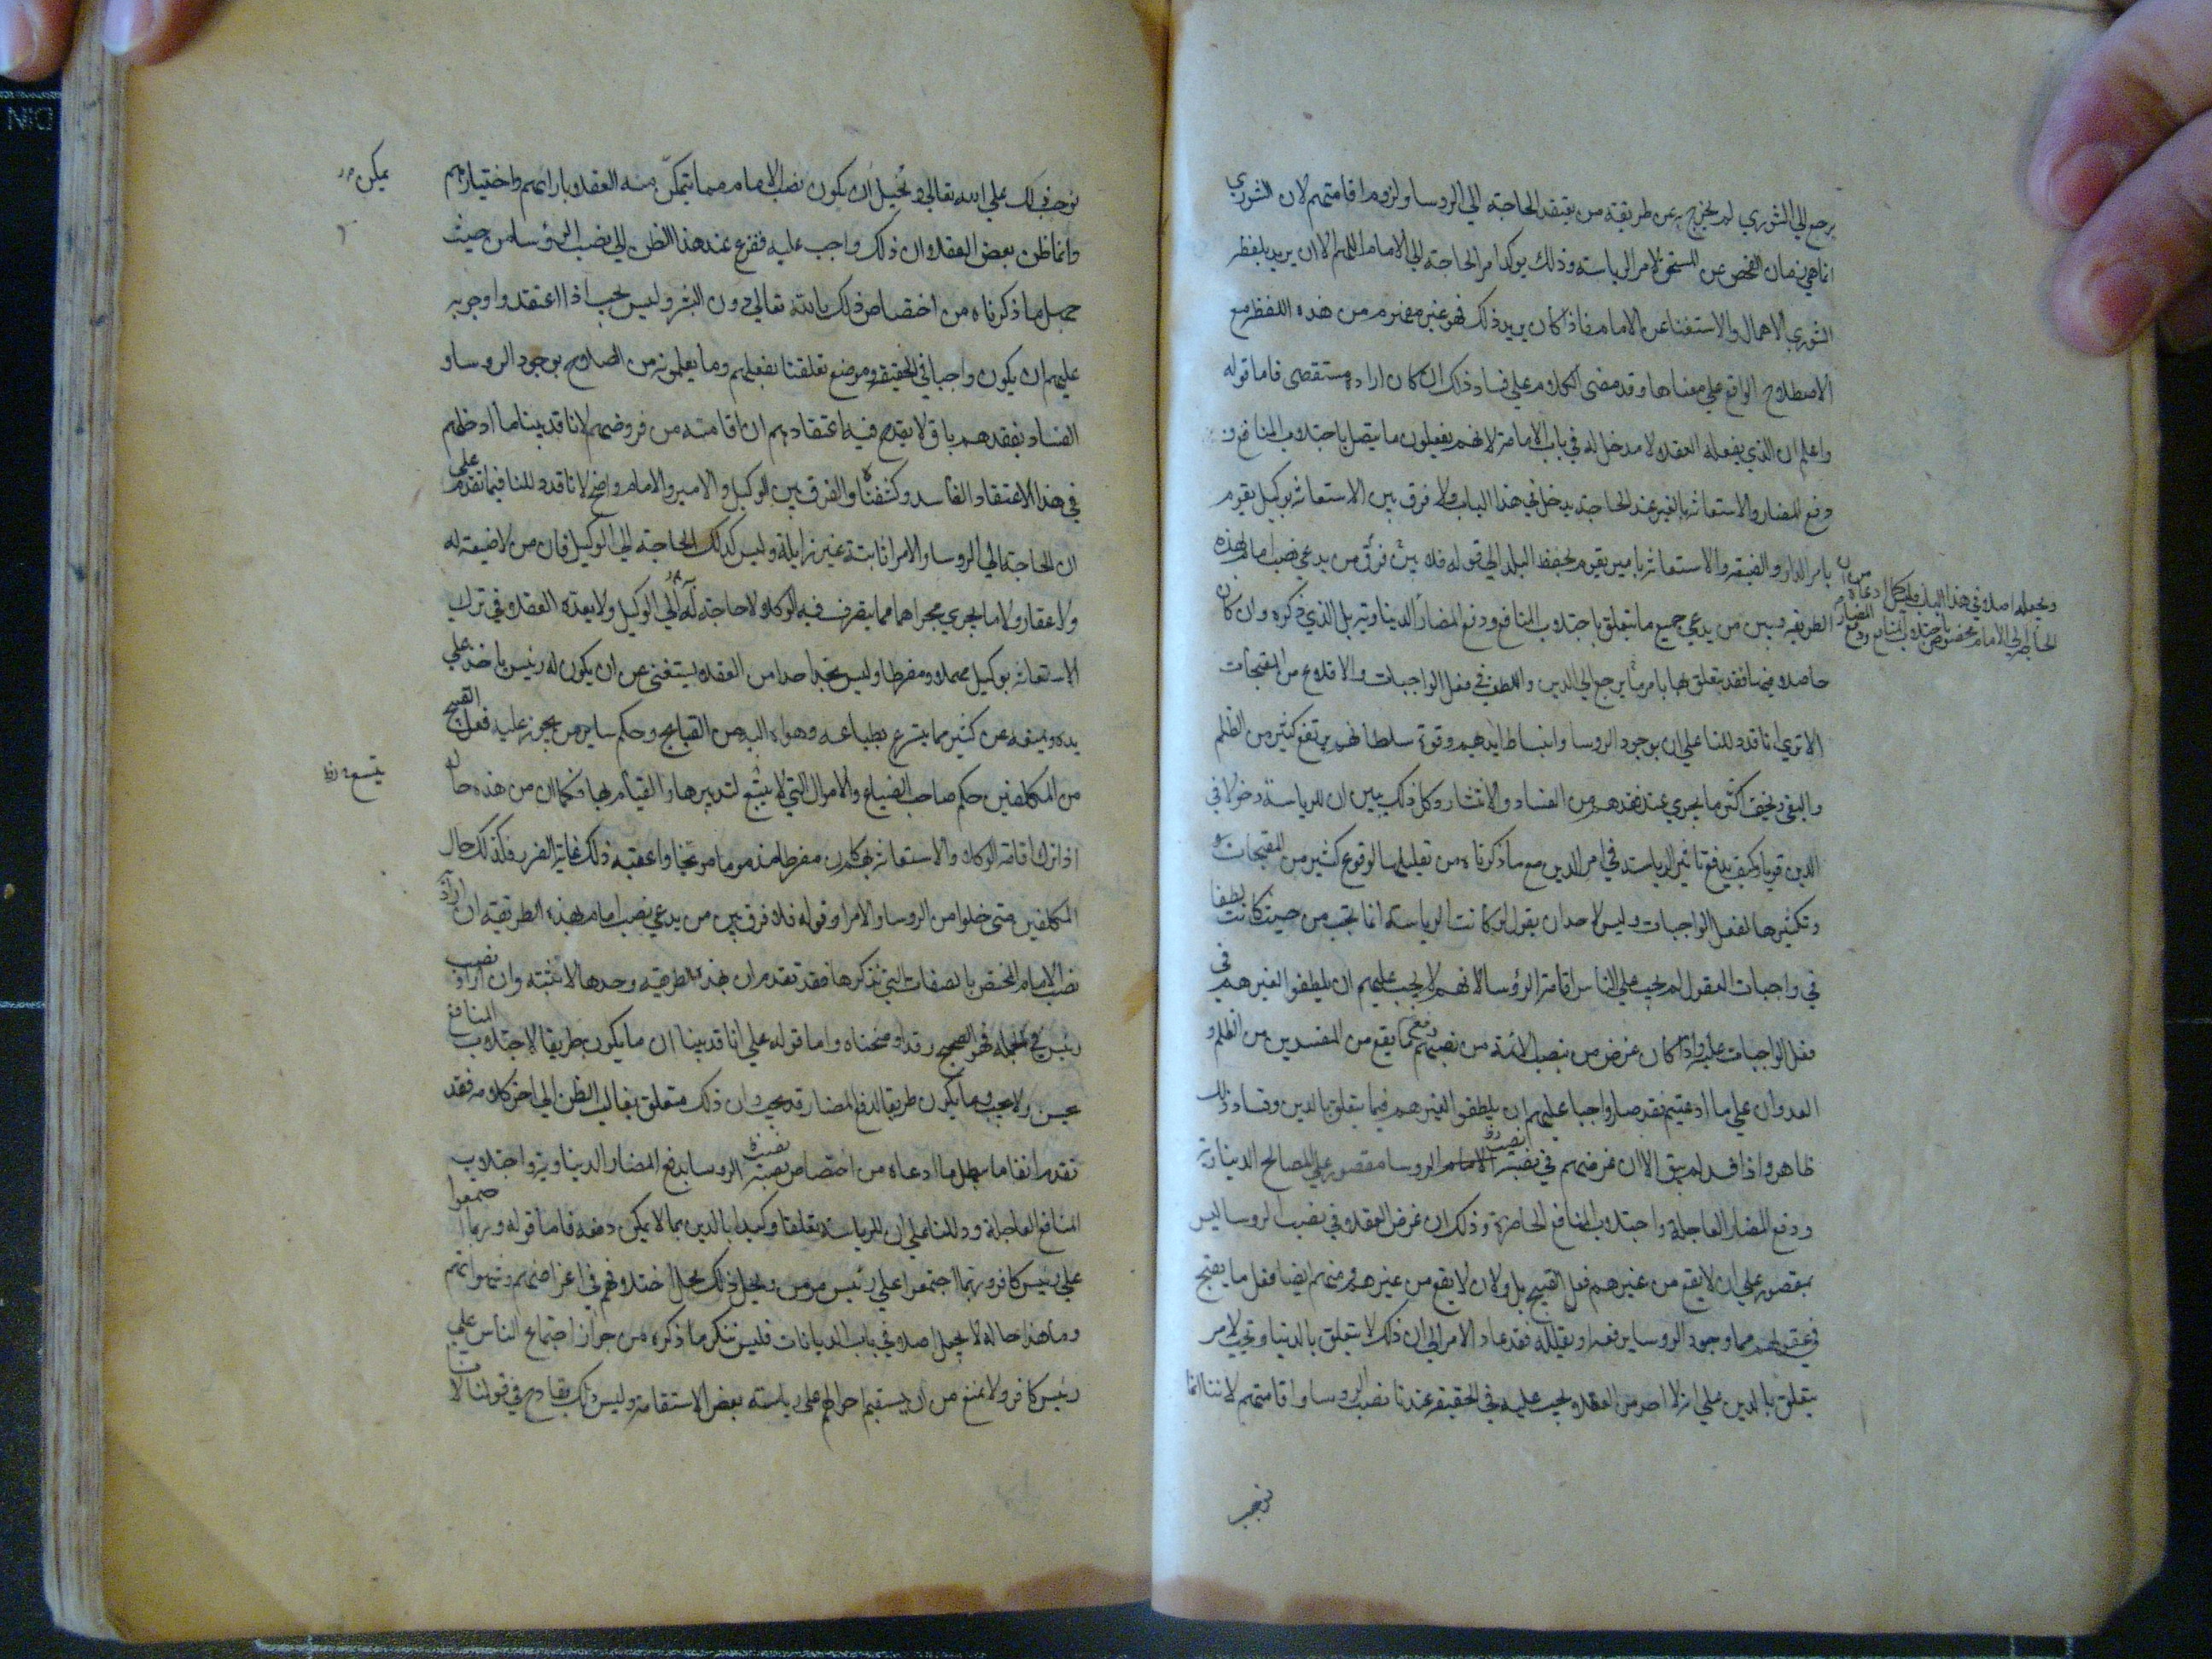 يرجع الي الشوري لم يخرج به عن طريقة من يعتقد الحاجة الي الروسا ولزوم اقامتهم لان الشوري
انما هي زمان الفحص عن المستحق لامر الرياسة وذلك يوكد امر الحاجة الي الامام اللهم الا ان يريد بلفظ
الشوري الاهمال والاستغنا عن الامام فاذا كان يريد ذلك فهو غير مفهوم من هذه اللفظة مع
الاصطلاح الواقع علي معناها وقد مضى الكلام علي فساد ذلك ان كان اراده مستقصى فاما قوله
واعلم ان الذي يفعله العقلاء لا مدخل له في باب الامامة لانهم يفعلون ما يتصل باجتلاب المنافع و
دفع المضار والاستعانة بالغير عند الحاجة يدخل في هذا الباب ولا فرق بين الاستعانة بوكيل يقوم
بامر الدار والضيعة والاستعانة بامير يقوم بحفظ البلد الي قوله فلا بين فرق من يدعي نصب امام لهذه
الطريقة وبين من يدعي جميع ما يتعلق باجتلاب المنافع ودفع المضار الدنياوية بل الذي ذكره وان كان
حاصلا فيها فقد يتعلق بها بامر ما يرجع الي الدين واللطف في فعل الواجبات والاقلاع من المقبحات
الا تري انا قد دللنا علي ان بوجود الروسا وانبساط ايديهم وقوة سلطانهم يرتفع كثير من الظلم
والبغي ويخف اكثر ما يجري عند فقدهم من الفساد والانتشار وكل ذلك يبين ان للرياسة دخولا في
الدين قويا وكيف يدفع تاثير الرياسة في امر الدين مع ما ذكرناه من تقليلها لوقوع كثير من المقبحات و
وتكثيرها لفعل الواجبات وليس لاحد ان يقول لو كانت الرياسة انما تجب من حيث كانت لطفا
في واجبات العقول لم يجب علي الناس اقامة الرؤسا لانهم لا يجب عليهم ان يلطفوا لغيرهم في
فعل الواجبات عليه واذا كان غرض من ينصب الائمة من نصبهم رفع ما يقع من المفسدين من الظلم و
العدوان علي ما ادعيتم فقد صار واجبا عليهم ان يلطفوا لغيرهم فيما يتعلق بالدين وفساد ذلك
ظاهر واذا فسد لم يبق الا ان غرضهم في نصبه الامام الروسا مقصور علي المصالح الدنياوية
ودفع المضار العاجلة واجتلاب المنافع الحاضرة وذلك ان غرض العقلاء في نصب الروسا ليس
بمقصور علي ان لا يقع من غيرهم فعل القبيح بل ولان لا يقع من غيرهم ومنهم ايضا فعل ما يقبح
في عقولهم مما وجود الروسا يرفعه او يقلله فقد عاد الامر الي ان ذلك لا يتعلق بالدنيا وتجب لامر
يتعلق بالدين علي انه لا احد من العقلاء يجب عليه في الحقيقة عندنا نصب الروسا واقامتهم لاننا انما
ويجعله اصلا في هذا الباب
نوجب ذلك علي الله تعالي ونحيل ان يكون نصب الامام مما يتمكن منه العقلاء بارائهم واختيارهم
يمكن
وانما ظن بعض العقلاء ان ذلك واجب عليه ففزع عند هذا الظن الي نصب الرؤسا من حيث
جهل ما ذكرناه من اختصاص ذلك بالله تعالي دون البشر وليس يجب اذا اعتقدوا وجوبه
عليهم ان يكون واجبا في الحقيقة وموضع تعلقنا بفعلهم وما يعلمونه من الصلاح بوجود الروسا و
الفساد بفقدهم باق لا يقدح فيه اعتقادهم ان اقامته من فروضهم لانا قد بينا ما ادخلهم
في هذا الاعتقاد الفاسد وكشفناه والفرق بين الوكيل والامير والامام واضح لانا قد دللنا فيما تقدم علي
ان الحاجة الي الروسا والامرا ثابتة غير زايلة وليس كذلك الحاجة الي الوكيل فان من لا ضيعة له
ولا عقار ولا ما يجري مجراهما مما يتصرف فيه الوكلاء لا حاجة له الي الوكيل ولا يعده العقلاء في ترك
الاستعانة بوكيل مهملا ومفرطا وليس نجد احدا من العقلاء يستغني عن ان يكون له رئيس ياخذ علي
يده ويمنعه عن كثير مما يتسرع بطباعه وهواه اليه من القبايح وحكم ساير من يجوز عليه فعل القبيح
من المكلفين حكم صاحب الضياع والاموال التي لا يتسع لتدبيرها والقيام بها فكما ان من هذه حاله
يتسع
اذا ترك اقامة الوكلاء والاستعانة بهم كان مفرطا مذموما موبخا واعقبه ذلك غاية الضرر فكذلك حال
المكلفين متى خلوا من الروسا والامرا وقوله فلا فرق بين من يدعي نصب امام بهذه الطريقة ان اراد
نصب الامام المختص بالصفات التي نذكرها فقد تقدم ان هذه الطريقة وحدها لا تثبته وان اراد نصب
رئيس في الجملة فهو الصحيح وقد اوضحناه واما قوله علي انا قد بينا ان ما يكون طريقا لاجتلاب المنافع
يحسن ولا يجب وما يكون طريقا لدفع المضار قد يجب وان ذلك متعلق بغالب الظن الي اخر كلامه فقد
تقدم انفا ما يبطل ما ادعاه من اختصاص نصبة الروسا بدفع المضار الدنياوية واجتلاب
المنافع العاجلة ودللنا علي ان للرياسة تعلقا وكيدا بالدين بما لا يمكن دفعه فاما قوله وربما اجتمعوا
علي رئيس كافر وربما اجتمعوا علي رئيس مومن ويحل ذلك محل اختلافهم في اغراضهم وشهواتهم
وما هذا حاله لا يجعل اصلا في باب الديانات فليس ننكر ما ذكره من جواز اجتماع الناس علي
رئيس كافر ولا نمنع من ان يستقيم احوالهم على رياسته بعض الاستقامة وليس ذلك بقادح في قولنا لانا